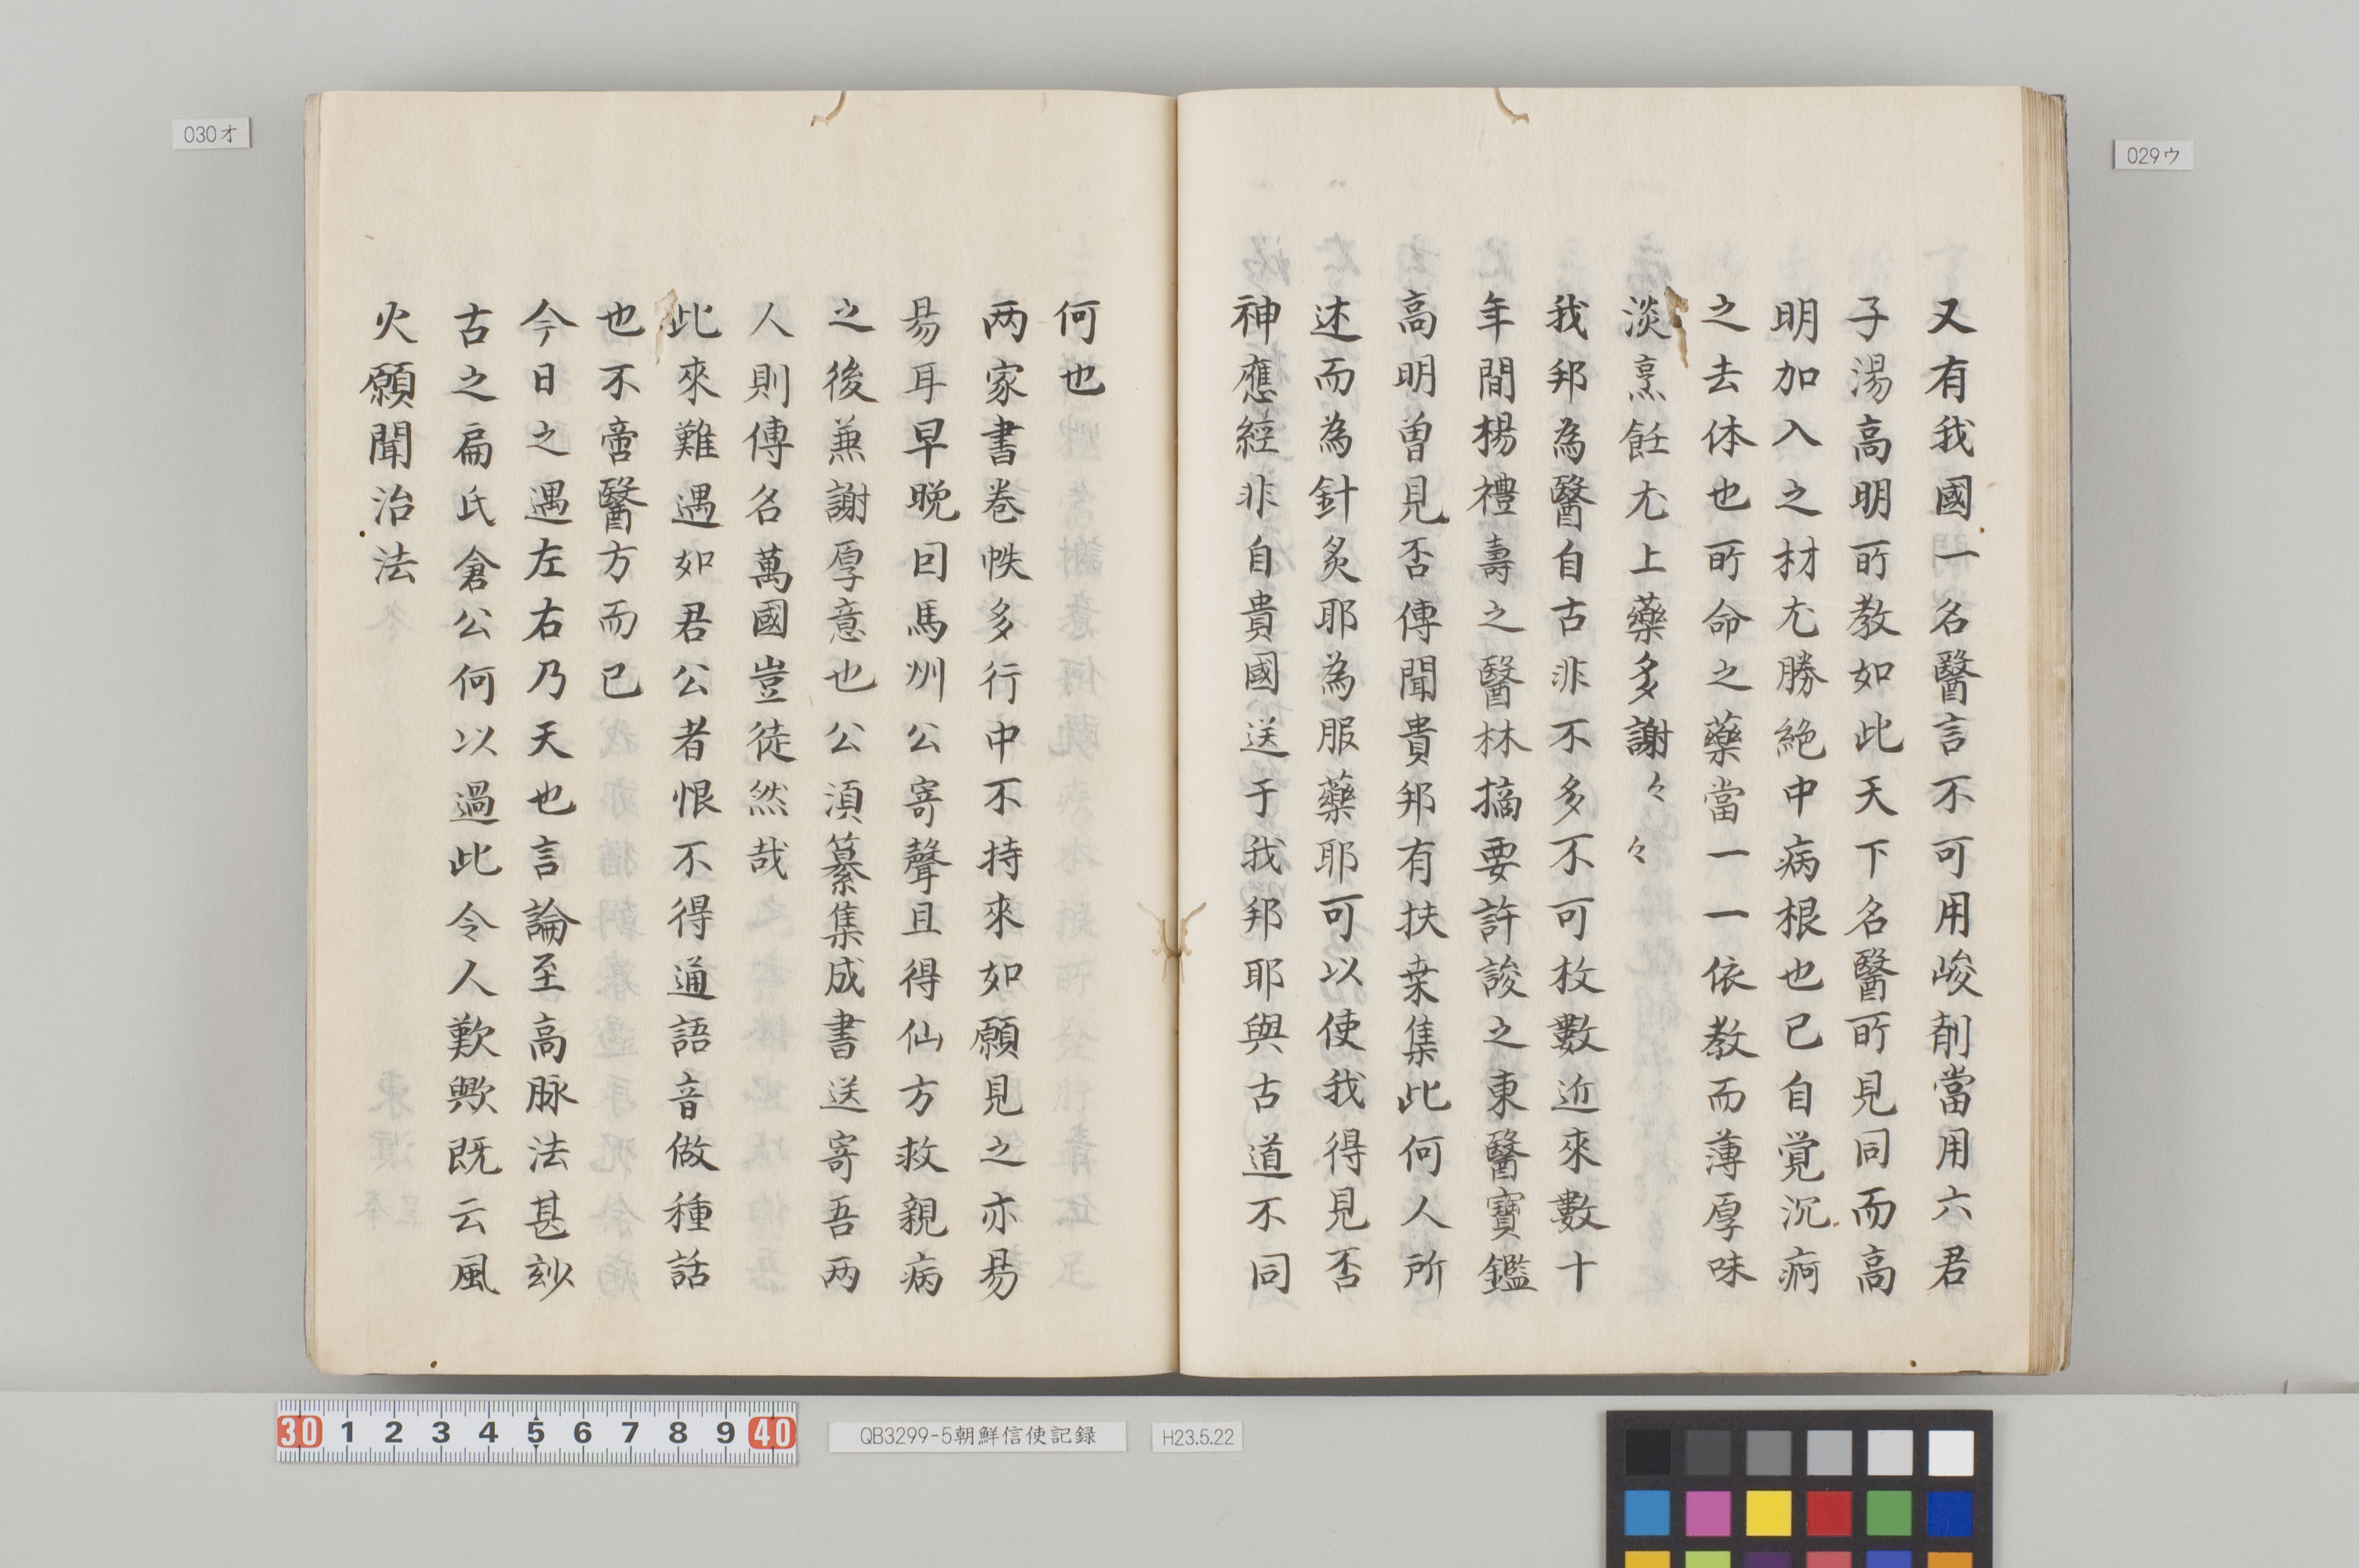 029ウ
又有我國一名醫言不可用峻削當用六君
子湯高明所教如此天下名醫所見同而高
明加入之材尤勝絶中病根也已自覚沉痾
之去体也所命之藥當一一依教而薄厚味
淡烹飪尤上藥多謝々々
我邦為醫自古非不多不可枚數近來數十
年間楊禮壽之醫林摘要許詖之東醫寶鑑
高明曽見否傳聞貴邦有扶桒集此何人所
述而為針炙耶為服藥耶可以使我得見否
神應經非自貴國送于我邦耶與古道不同
030オ
何也
两家書巻帙多行中不持來如願見之亦昜
昜耳早晩回馬州公寄聲且得仙方救親病
之後兼謝厚意也公湏纂集成書送寄吾两
人則傳名萬國豈徒然哉
此來難遇如君公者恨不得通語音做種話
也不啻醫方而已
今日之遇左右乃天也言論至高脉法甚玅
古之扁氏倉公何以過此令人歎歟既云風
火願聞治法
30 1 2 3 4 5 6 7 8 9 40
QB3299-5朝鮮信使記録
H23.5.22